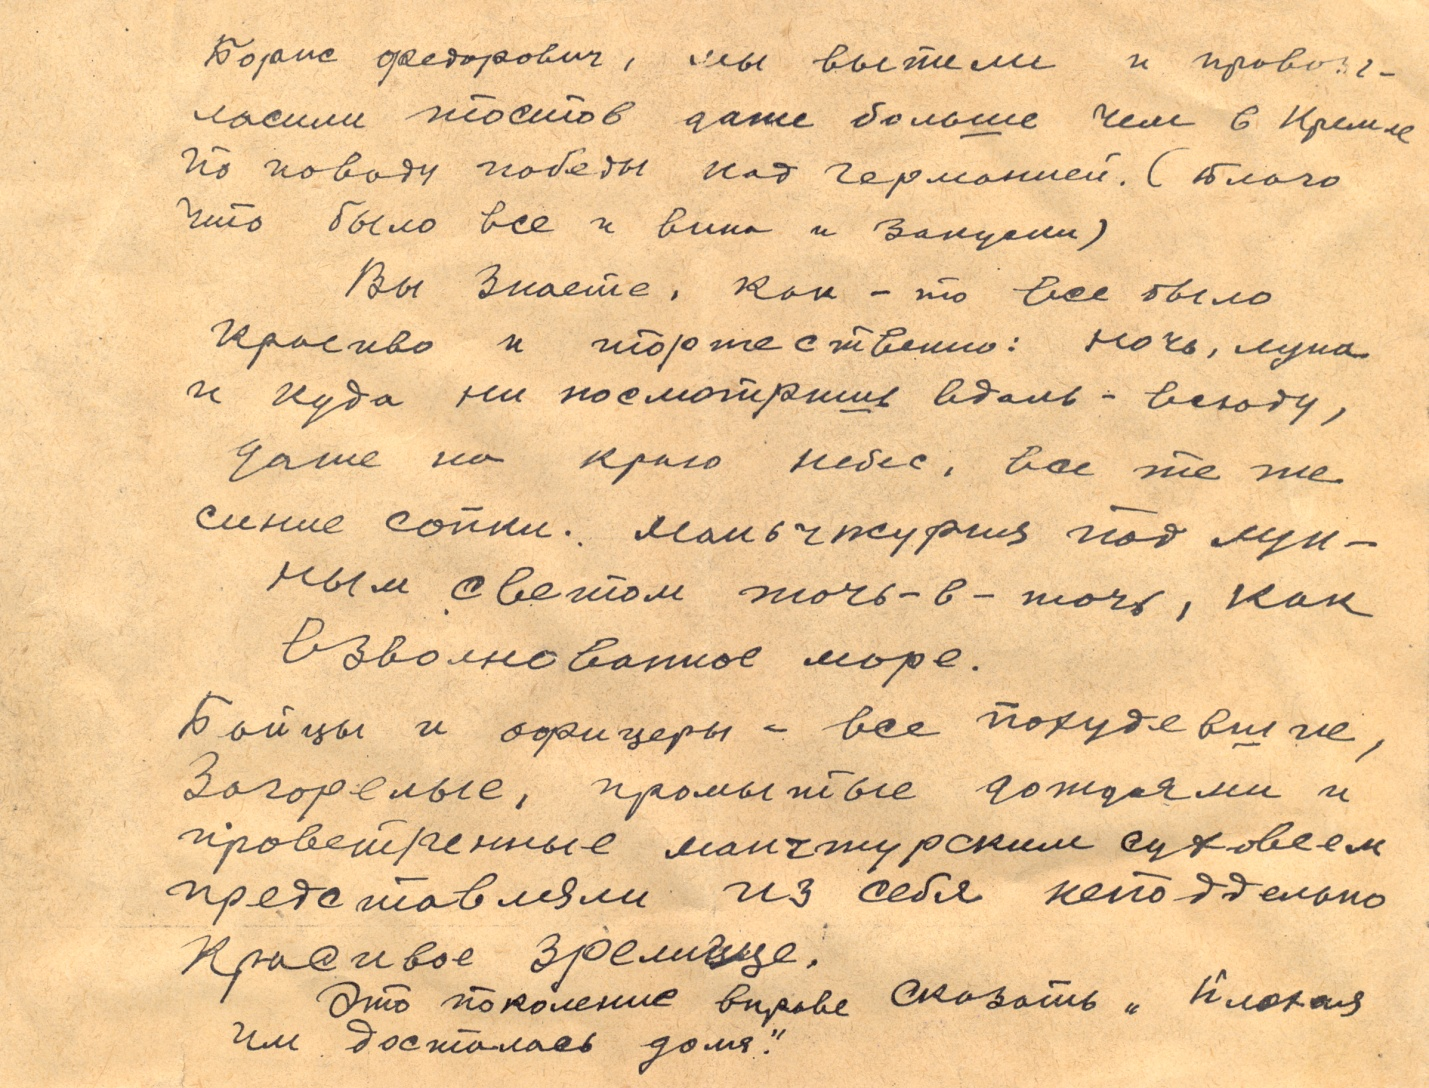 Борис Федорович, мы выпили и провозг-
ласили тостов даже больше чем в Кремле
по поводу победы над Германией. (благо
что было все и вина и закуски)
Вы знаете, как-то все было
красиво и торжественно: ночь, луна
и куда ни посмотришь вдаль - всюду,
даже на краю небес, все те же
синие сопки. Маньчжурия под лун-
ным светом точь-в-точь, как
взволнованное море.
Бойцы и офицеры - все похудевшие,
загорелые, промытые дождями и
проветренные манчжурским суховеем
представляли из себя неподдельно
красивое зрелище.
Это поколение вправе сказать „Плохая
им досталась доля."